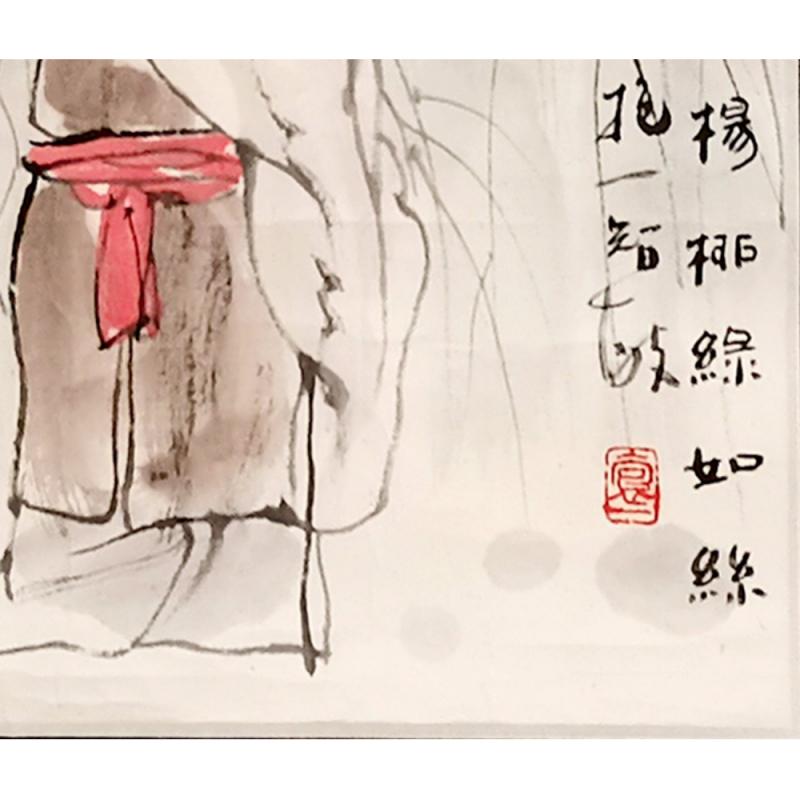 楊柳綠如絲
抱一智